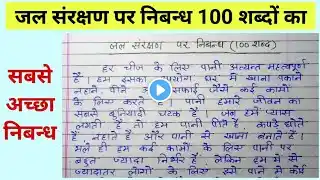 जल संरक्षण पर निबन्ध 100 शब्दों का
सबसे
अच्छा
निबन्ध
जल संरक्षण पर निबन्ध (100 शब्द)
हर चीज के लिस पानी अत्यन्त महत्वपूर्ण
है। हम इसका उपयोग घर में खाना पकाने
नहाने पीने सफाई जैसे कई कामों
के लिस करते है। पानी हमारे जीवन का
सबसे बुनियादी घटक है। जब हमें प्यास
लगती है तो हम पानी पीते है कपड़े धोते
है नहाते है और पानी से खाना बनाते है।
भले ही हम कई कामों के लिस पानी पर
बहुत ज्यादा निर्भर है लेकिन हम में से
ज्यादातर लोगो के लिस इसे पाने में कोई